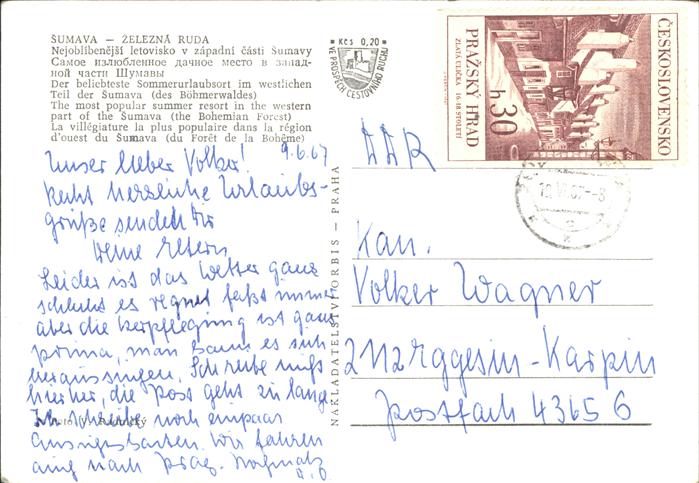 ŠUMAVA — ŽELEZNÁ RUDA
Nejoblíbenější letovisko v západní části Šumavy
Самое излюбленное дачное место в запад-
ной части Шумавы
Der beliebteste Sommerurlaubsort im westlichen
Teil der Šumava (des Böhmerwaldes)
The most popular summer resort in the western
part of the Šumava (the Bohemian Forest)
La villégiature la plus populaire dans la région
d'ouest du Šumava (du Forêt de la Bohême)
Kčs 0,20
VE PROSPĚCH CESTOVNÍHO RUCHU
ČESKOSLOVENSKO
PRAŽSKÝ HRAD
ZLATÁ ULIČKA 16-18 STOLETÍ
h 30
NAKLADATELSTVÍ ORBIS — PRAHA
9.6.67
Unser lieber Volker!
Recht herzliche Urlaubs-
grüße senden Dir
Deine Eltern
Leider ist das Wetter ganz
schlecht es regnet fast immer
aber die Verpflegung ist ganz
prima, man kann es sich
heraussingen. Schreibe nicht
hierher, die Post geht zu lange
Ich schreibe noch einpaar
Ansichtskarten. Wir fahren
auch nach Prag. Nochmals
DDR
Kan.
Volker Wagner
2112 Eggesin-Karpin
Postfach 43656